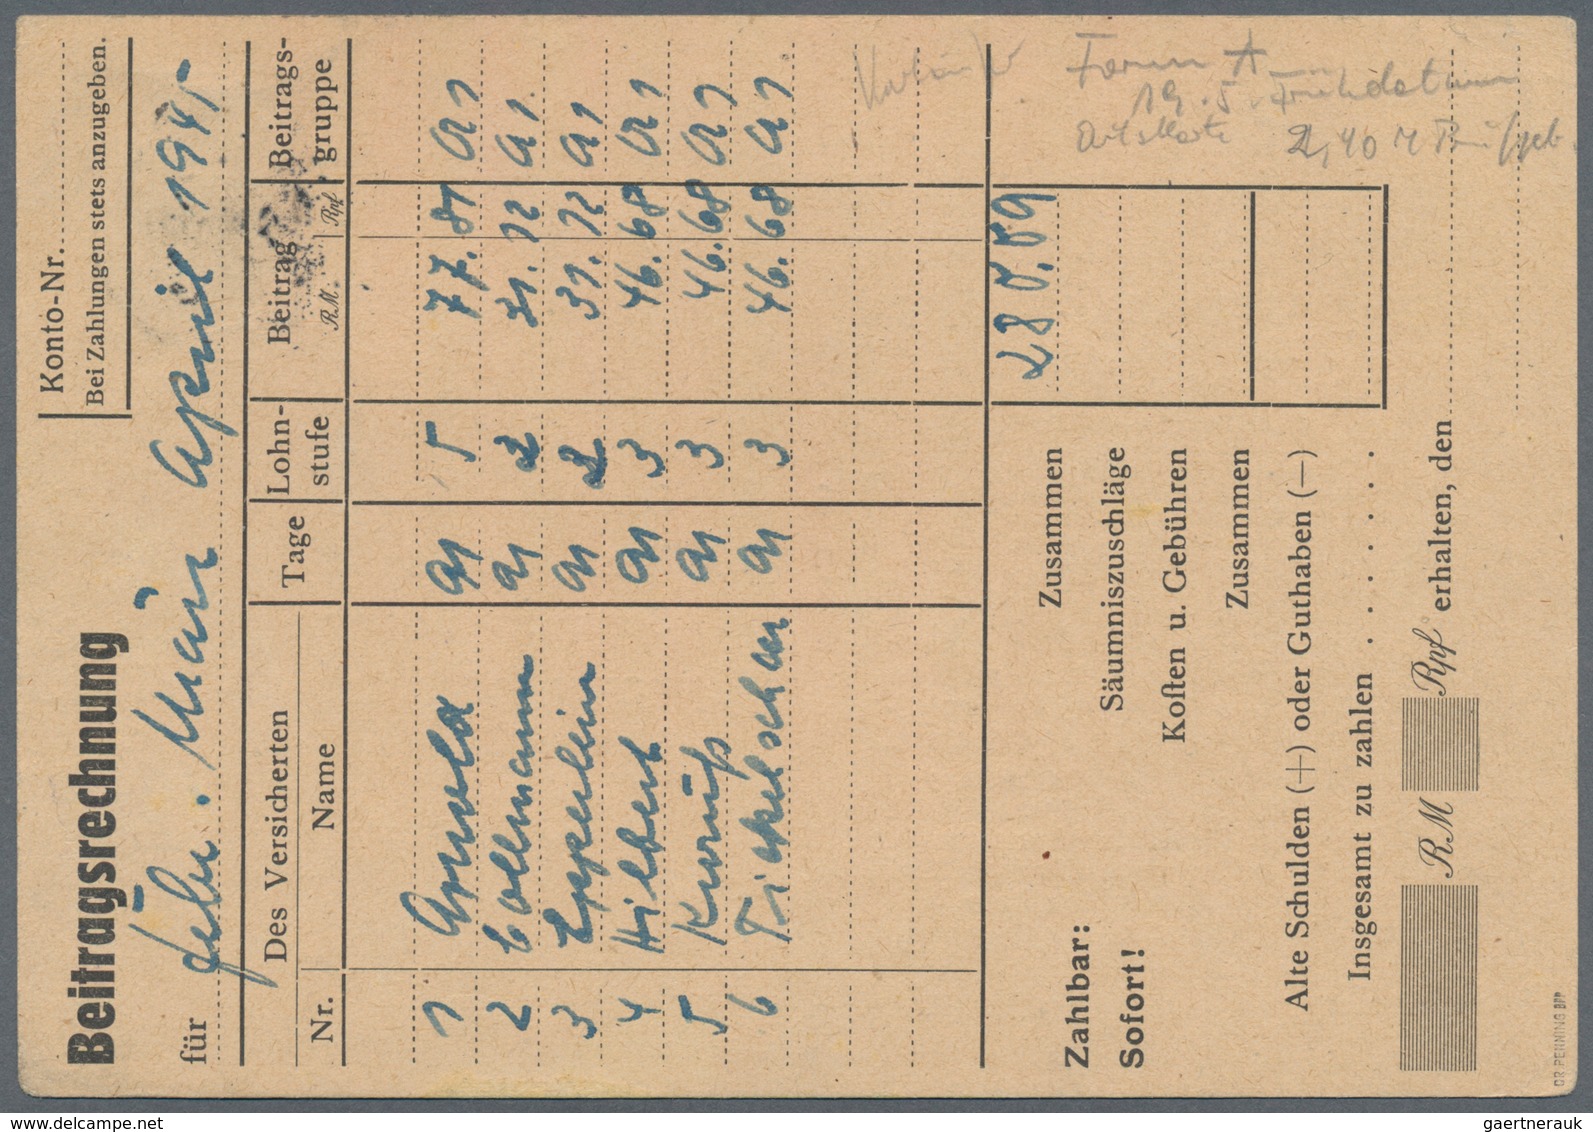 Konto-Nr.
Bei Zahlungen stets anzugeben.
Beitragsrechnung
für Febr. März April 1945
Des Versicherten Tage Lohn-stufe Beitrag Beitrags-gruppe
Nr. Name RM. Rpf
1 Arnold 91 5 77.81 a1
2 Collmann 91 2 31.12 a1
3 Epperlein 91 2 31.12 a1
4 Hilbert 91 3 46.68 a1
5 91 3 46.68 a1
6 91 3 46.68 a1
Zahlbar:
Sofort!
Zusammen 280.09
Säumniszuschläge
Koſten u. Gebühren
Zusammen
Alte Schulden (+) oder Guthaben (—)
Insgesamt zu zahlen . . . . . .
RM Rpf erhalten, den
Form A
19.5. Frühdatum
Ortskarte 2,40 M Prüfgeb.
DR. PENNING BPP
gaertnerauk @ www.delcampe.net